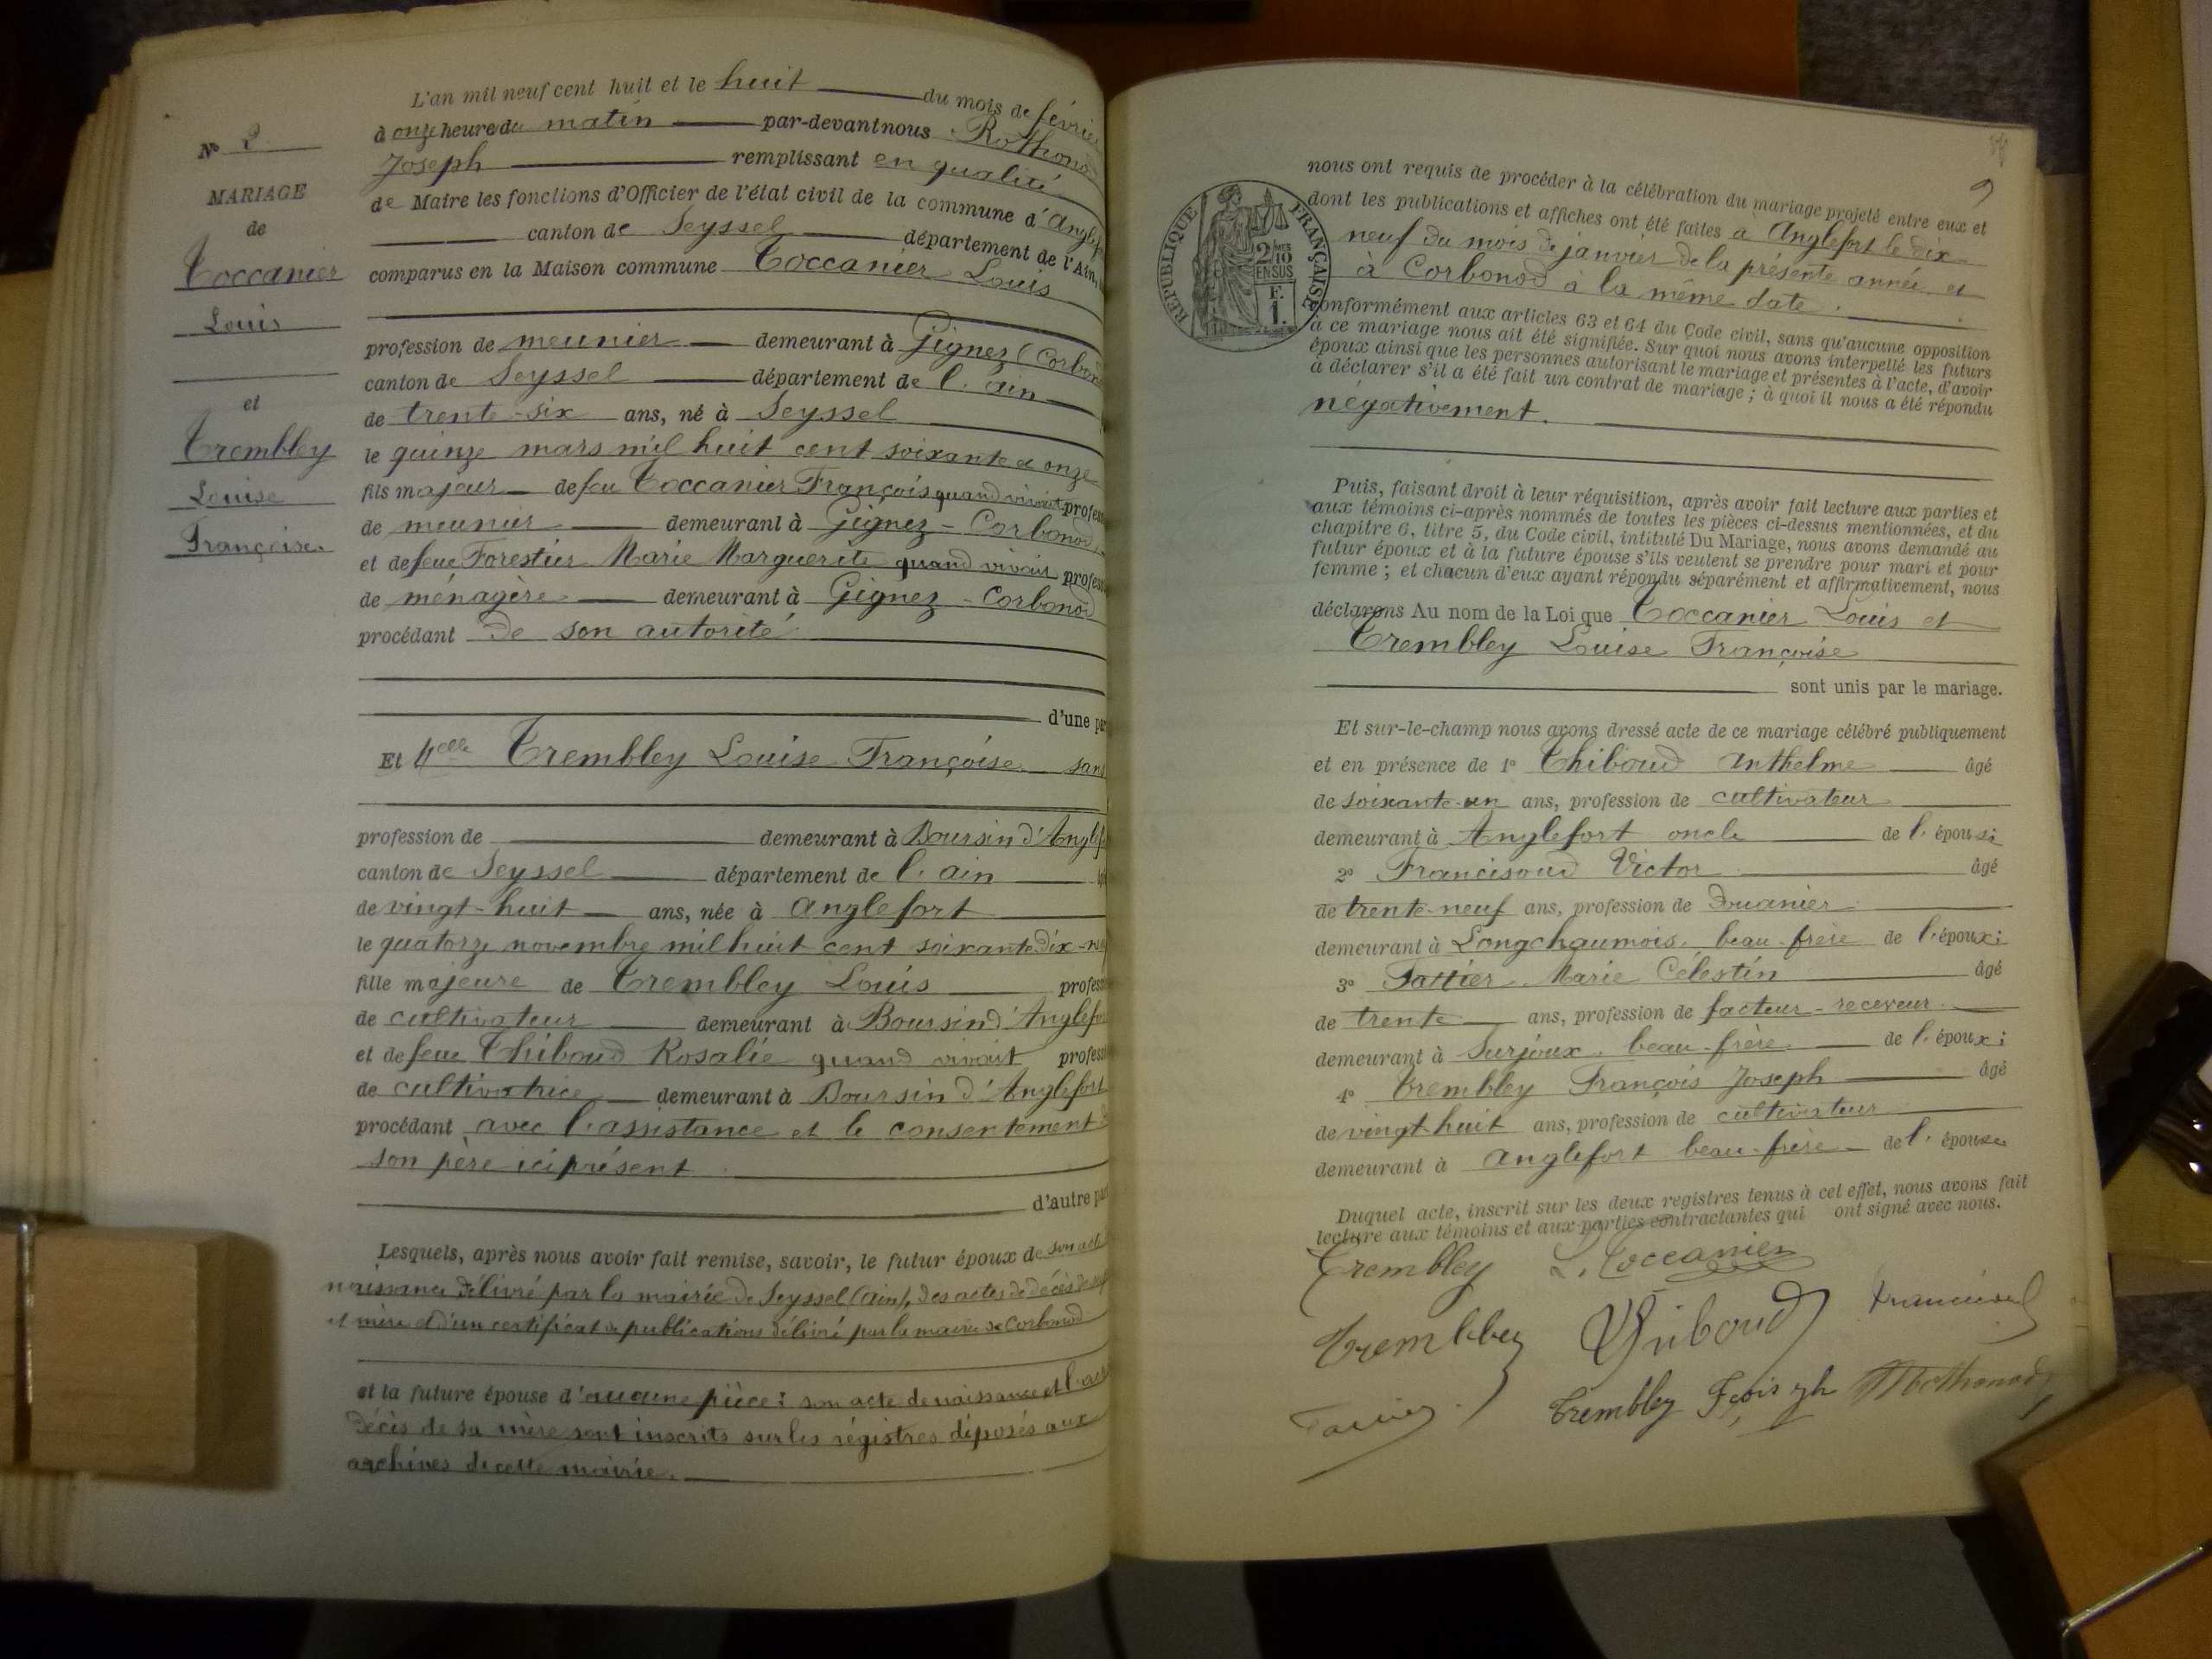 L'an mil neuf cent huit et le huit du mois de févrie
à onze heure du matin par-devant nous Rothonod
Joseph remplissant en qualité
de Maire les fonctions d'Officier de l'état civil de la commune d'Anglef
canton de Seyssel département de l'Ain,
comparus en la Maison commune Toccanier Louis
profession de meunier demeurant à Gignez (Corbon
canton de Seyssel département de l'ain
de trente-six ans, né à Seyssel
le quinze mars mil huit cent soixante et onze
fils majeur de feu Toccanier François quand vivait profess
de meunier demeurant à Gignez - Corbonod
et de feue Forestier Marie Marguerite quand vivait profess
de ménagère demeurant à Gignez - Corbonod
procédant de son autorité
d'une par
Et Melle Trembley Louise Françoise sans
profession de demeurant à Boursin d'Anglef
canton de Seyssel département de l'ain
de vingt-huit ans, née à Anglefort
le quatorze novembre mil huit cent soixante dix-neu
fille majeure de Trembley Louis profess
de cultivateur demeurant à Boursin d'Anglefor
et de feue Thiboud Rosalie quand vivait profess
de cultivatrice demeurant à Boursin d'Anglefort
procédant avec l'assistance et le consentement de
son père ici présent
d'autre par
Lesquels, après nous avoir fait remise, savoir, le futur époux de son acte
naissance délivré par la mairie de Seyssel (Ain), des actes de décès de
et mère et d'un certificat de publications délivré par la mairie de Corbonod
et la future épouse d'aucune pièce: son acte de naissance et l'acte
décès de sa mère sont inscrits sur les régistres déposés aux
archives de cette mairie.
N° 2
MARIAGE
de
Toccanier
Louis
et
Trembley
Louise
Françoise.
9
nous ont requis de procéder à la célébration du mariage projeté entre eux et
dont les publications et affiches ont été faites à Anglefort le dix-
neuf du mois de janvier de la présente année et
à Corbonod à la même date.
conformément aux articles 63 et 64 du Code civil, sans qu'aucune opposition
à ce mariage nous ait été signifiée. Sur quoi nous avons interpellé les futurs
époux ainsi que les personnes autorisant le mariage et présentes à l'acte, d'avoir
à déclarer s'il a été fait un contrat de mariage; à quoi il nous a été répondu
négativement.
RÉPUBLIQUE FRANÇAISE
2/10 MES
EN SUS
F.
1.
Puis, faisant droit à leur réquisition, après avoir fait lecture aux parties et
aux témoins ci-après nommés de toutes les pièces ci-dessus mentionnées, et du
chapitre 6, titre 5, du Code civil, intitulé Du Mariage, nous avons demandé au
futur époux et à la future épouse s'ils veulent se prendre pour mari et pour
femme; et chacun d'eux ayant répondu séparément et affirmativement, nous
déclarons Au nom de la Loi que Toccanier Louis et
Trembley Louise Françoise
sont unis par le mariage.
Et sur-le-champ nous avons dressé acte de ce mariage célébré publiquement
et en présence de 1° Thiboud Anthelme âgé
de soixante-un ans, profession de cultivateur
demeurant à Anglefort oncle de l'épouse
2° Francisoud Victor âgé
de trente-neuf ans, profession de Douanier
demeurant à Longchaumois, beau-frère de l'époux;
3° Tattier Marie Célestin âgé
de trente ans, profession de facteur-receveur
demeurant à Surjoux, beau-frère de l'époux;
4° Trembley François Joseph âgé
de vingt-huit ans, profession de cultivateur
demeurant à Anglefort beau-frère de l'épouse
Duquel acte, inscrit sur les deux registres tenus à cet effet, nous avons fait
lecture aux témoins et aux parties contractantes qui ont signé avec nous.
Trembley L. Toccanier
Trembley Thiboud Francisoud
Trembley Fçois Jph Rothonod